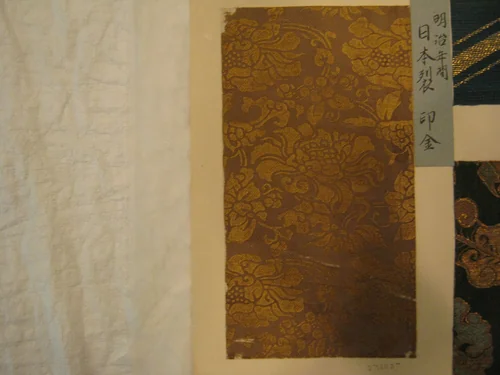 明治年間
日本裂 印金